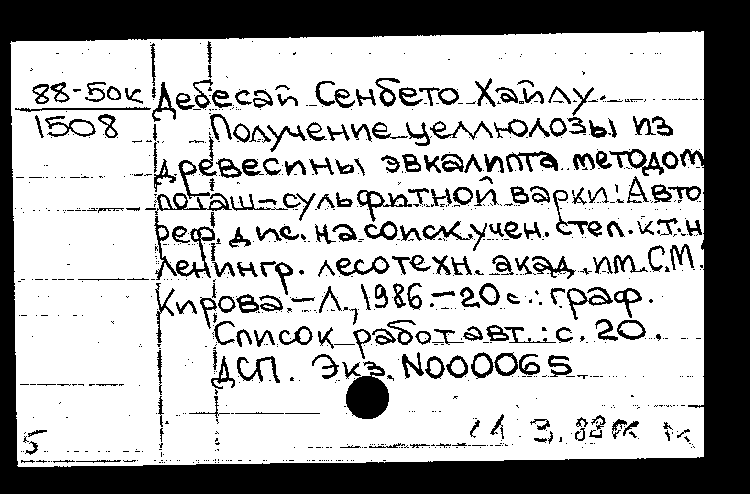 88-50к Дебесай Сенбето Хайлу.
1508 Получение целлюлозы из
древесины эвкалипта методом
поташ-сульфитной варки: Авто-
реф. дис. на соиск. учен. степ. к.т.н
Ленингр. лесотехн. акад. им. С.М.
Кирова. — Л., 1986. — 20 с.: граф.
Список работ авт.: с. 20.
ДСП. Экз. N000065
5